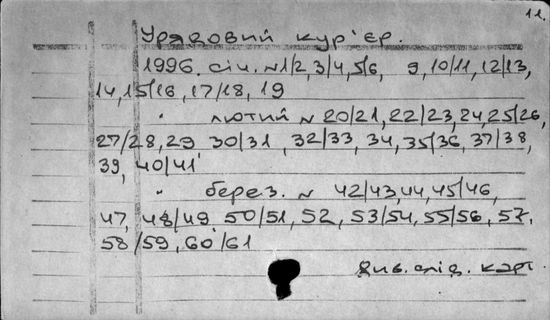 11.
Урядовий кур'єр.
1996. січ. N1/2,3/4,5/6, 9,10/11,12/13,
14,15/16,17/18,19
" лютий N 20/21,22/23,24,25/26,
27/28,29 30/31,32/33,34,35/36,37/38,
39, 40/41
" берез. N 42/43,44,45/46,
47, 48/49 50/51,52,53/54,55/56,57,
58/59,60/61
див. слід. карт.